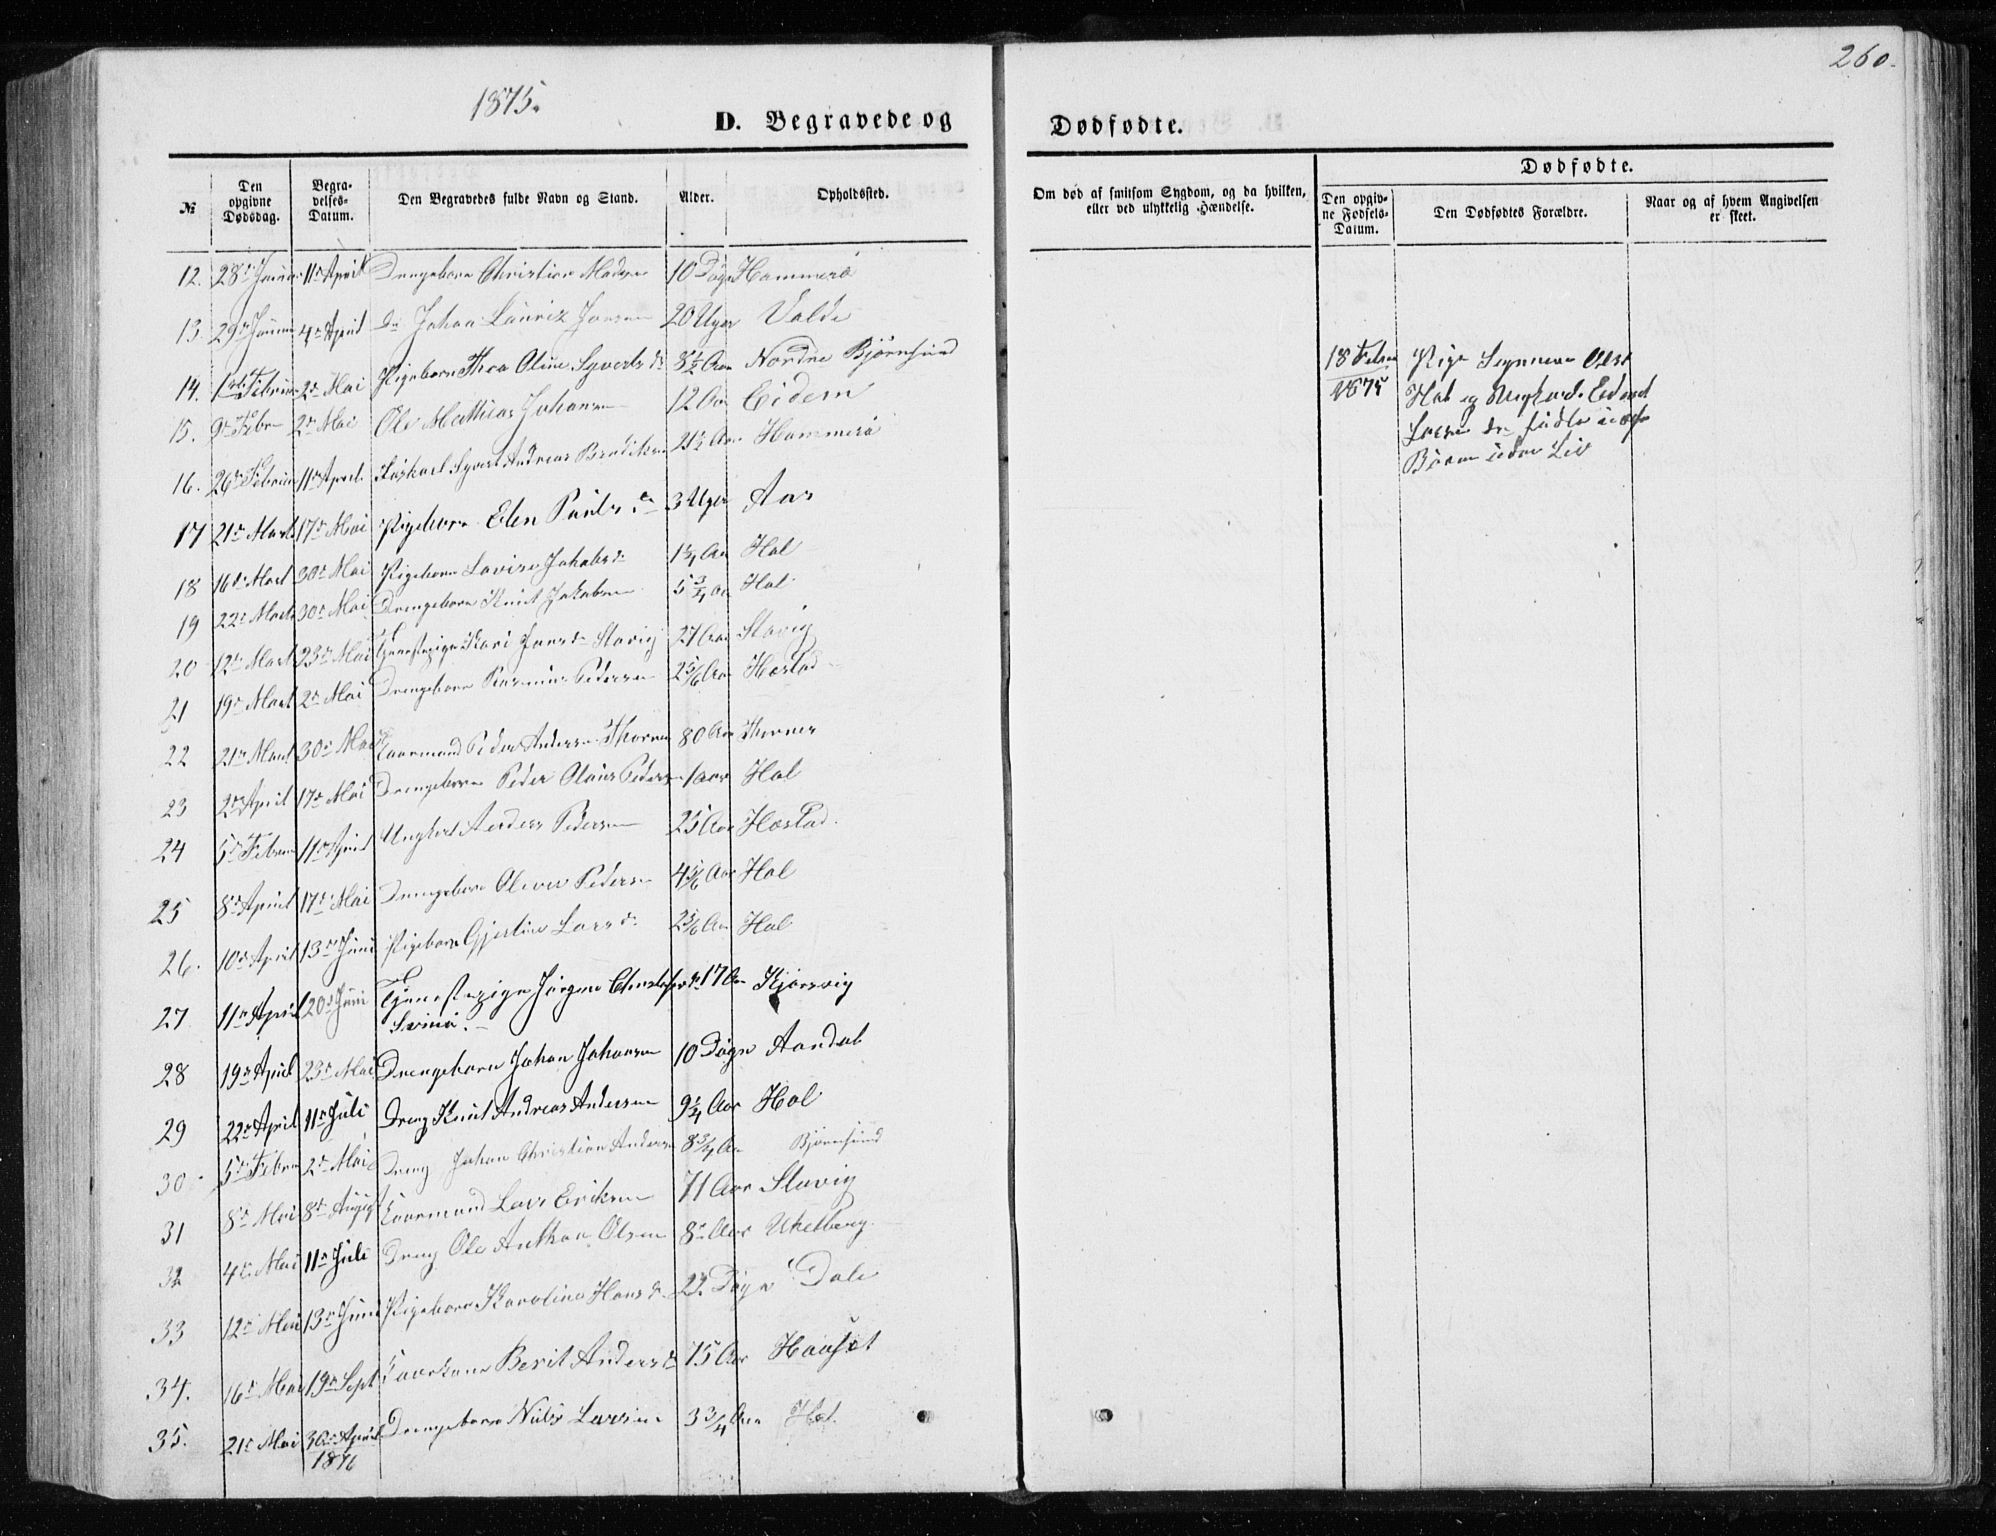 1875.
260.
D. Begravede og Dødfødte.
Dødfødte.
№
Den opgivne Dødsdag.
Begravelses-Datum.
Den Begravedes fulde Navn og Stand.
Alder.
Opholdssted.
Om død af smitsom Sygdom, og da hvilken, eller ved ulykkelig Hændelse.
Den opgivne Fødsels-Datum.
Den Dødfødtes Forældre.
Naar og af hvem Angivelsen er skeet.
12. 28de Januar 11te April Drengebarn Christian Madsen 10 Døgn Hammerö
13. 29de Januar 4de April Do Johan Lauriz Jonsen 20 Uger Valde
14. 1ste Februar 2de Mai Pigebarn Thea Oline Syvertsdr 8½ Aar Nordre Bjørnsund
15. 9de Febr 2de Mai Ole Mathias Johansen 12 Aar Eidem
16. 26de Februar 11te April Syvert Andreas 21 Aar Hammerö
17 21de Marts 17de Mai Pigebarn Elen Paulsdr 3 Uger Aas
18 16de Mart 30de Mai Pigebarn Lovise Jakobsdr 1¾ Aar Hol
19 22de Marts 30de Mai Drengebarn Knut Jakobsen 5¾ Aar Hol
20 12te Mart 23de Mai Tjenestepige Kari Jonsdr Slavig 27 Aar Slavig
21 19de Mart 2de Mai Drengebarn Rasmus Pedersen 2 5/6 Aar Hostad
22 21de Mart 30de Mai Kaarmand Peder Andersen Thornes 80 Aar Thornes
23 2den April 17de Mai Drengebarn Peder Olaus Pedersen 1 aar Hol
24 5te Februar 11te April Ungkarl Anders Pedersen 25 Aar Hostad
25 8de April 17de Mai Drengebarn Oliver Pedersen 4 5/6 Aar Hol
26. 10de April 13de Juni Pigebarn Gjertine Larsdr 2 5/6 Aar Hol
27 11te April 20de Juni Tjenestepige Jørgine 17 Aar Kjørsvig
Svinö.
28 19de April 23de Mai Drengebarn Johan Johansen 10 Døgn Aandal
29 22de April 11te Juli Dreng Knut Andreas Andersen 9¼ Aar Hol
30 5te Febr 2de Mai Dreng Johan Christian Andersen 8¾ Aar Bjørnsund
31 8de Mai 8de August Kaarmand Lars Eriksen 71 Aar Slavig
32 4de Mai 11te Juli Dreng Ole Anthon Olsen 8 Aar
33 12te Mai 13de Juni Pigebarn Karoline Hansdr 22 Døgn Dale
34. 16de Mai 19de Sept Kaarkone Berit Andersdr 75 Aar Hauset
35. 21de Mai 30te April Drengebarn Nils Larsen 3¾ Aar Hol.
1876
18 Febr Pige
1875 Hol og Ungkarl
Børn uden Liv